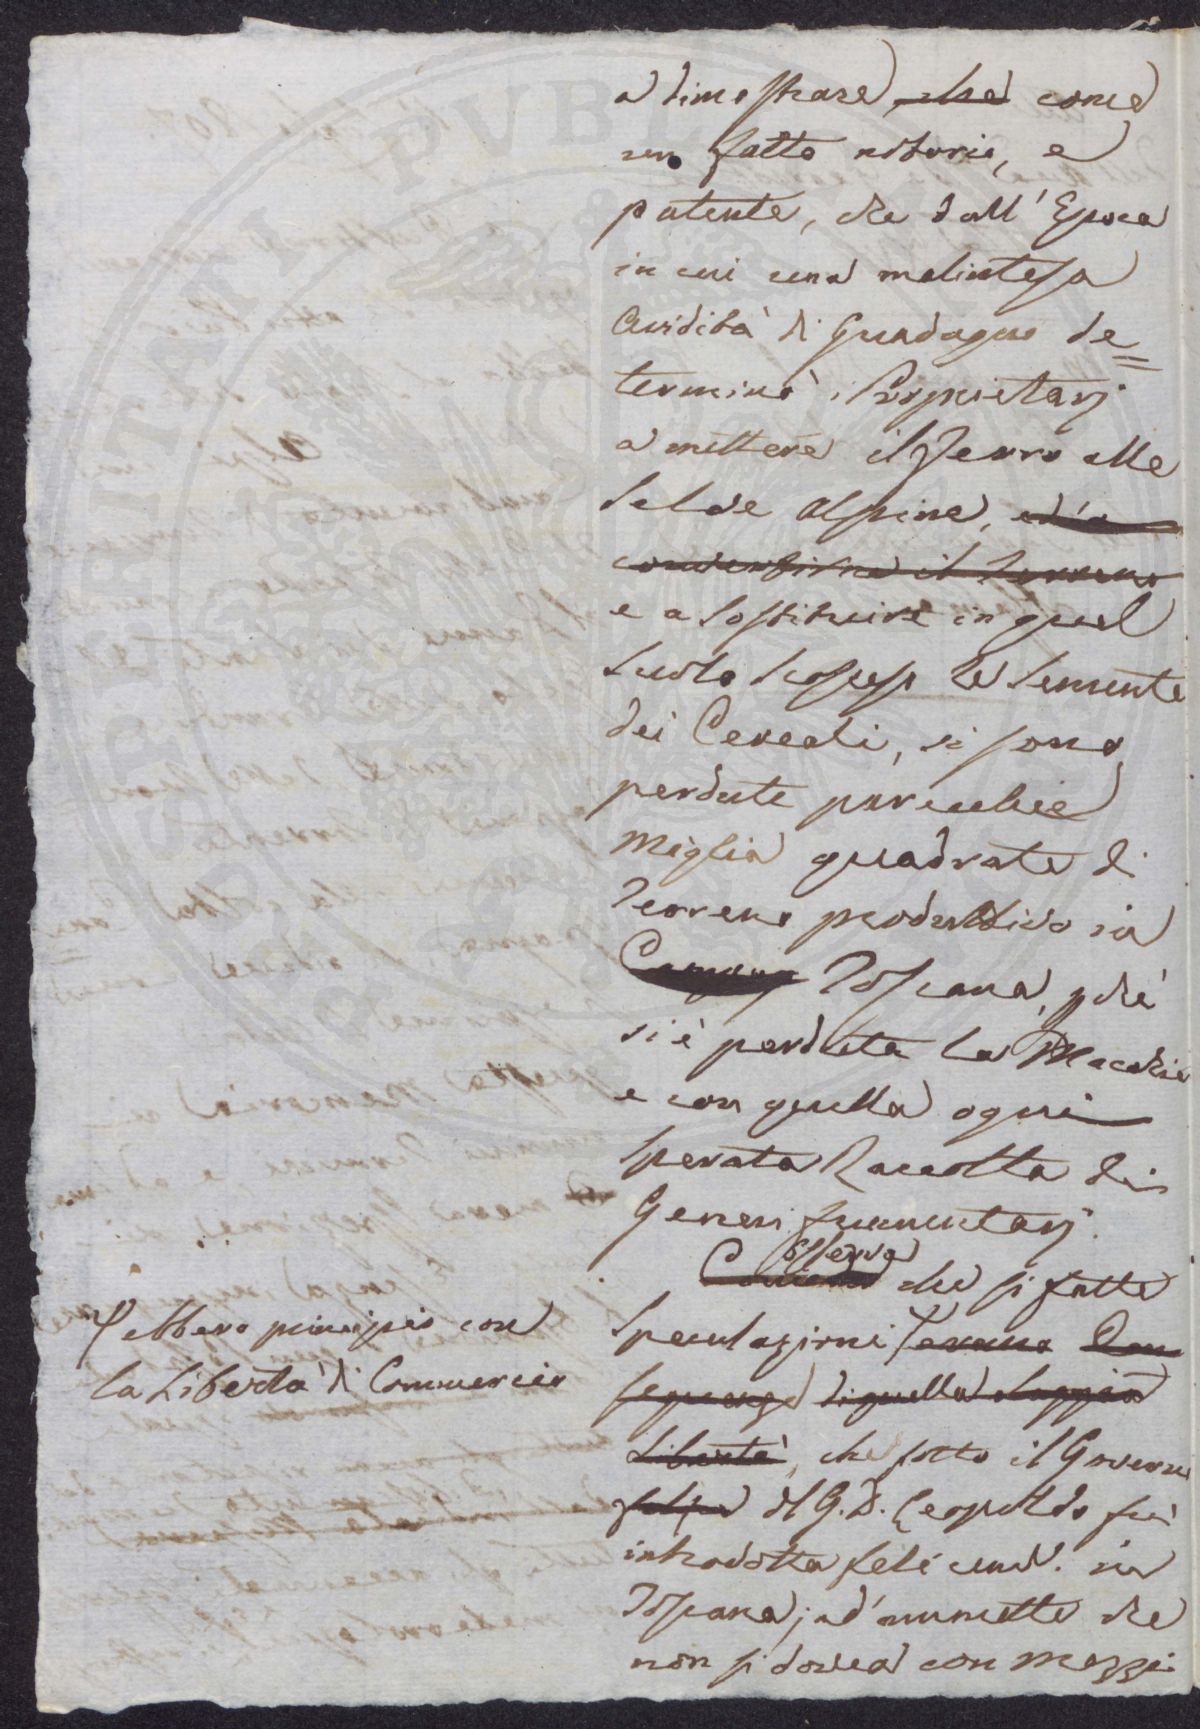 a dimostrare, che come
un fatto notorio, e
patente, che dall' Epoca
in cui una malintesa
Avidità di Guadagno de=
terminò i Proprietarj
a mettere il ferro alle
Selve Alpine, ed a
e a sostituire in quel
Suolo scosceso le Semente
dei Cereali, si sono
perdute parecchie
Miglia quadrate di
Terreno produttivo in
Toscana, p chè
si è perduta la Macchia
e con quella ogni
Sperata Raccolta di
Generi frumentarj.
Osserva
che si fatte
Ebbero principio con
la Libertà di Commercio
Speculazioni furono Con
seguenza di quella saggia
Libertà, che sotto il Governo
felice del G. D. Leopoldo fu
introdotta felicemte. in
Toscana; ed ammette che
non si dovea con mezzi